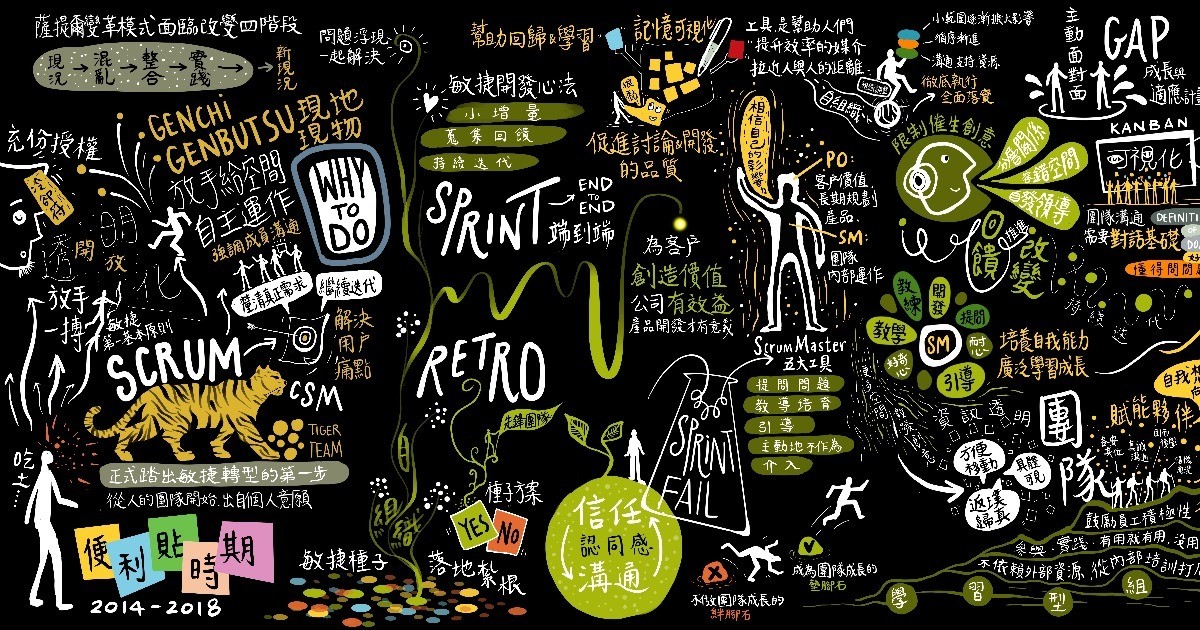 薩提爾變革模式面臨改變四階段
現況→混亂→整合→實踐→新現況
問題浮現
一起解決
充份授權
冷卻符
GENCHI
GENBUTSU
現地
現物
放手給空間
自主運作
強調成員溝通
釐清真正需求
繼續迭代
WHY
TO
DO
透明
開放
放手
一搏
敏捷
第一基本原則
解決
用戶
痛點
SCRUM
CSM
TIGER
TEAM
正式踏出敏捷轉型的第一步
從人的團隊開始.出自個人意願
吃土
便利貼時期
2014-2018
幫助回歸&學習
記憶可視化
敏捷開發心法
小增量
蒐集回饋
持續迭代
促進討論&開發
的品質
SPRINT
END
TO
END
端到端
為客戶
創造價值
公司有效益
產品開發才有意義
RETRO
先鋒團隊
種子方案
YES
NO
自
組
織
敏捷種子
落地紮根
信任
認同感
溝通
SPRINT
FAIL
工具是幫助人們
提升效率的媒介
拉近人與人的距離
相信自己的影響
PO:
客戶價值
長期規劃
產品
SM:
團隊
內部運作
Scrum Master
五大工具
提問問題
教導培育
引導
主動地不作為
介入
不做團隊成長的
絆腳石
成為團隊成長的
墊腳石
小範圍逐漸擴大影響
循序漸進
溝通 支持 資源
徹底執行
全面落實
自組織
主動面對面
GAP
成長與
適應計畫
限制催生創意
分層關係
容錯空間
自發領導
回饋
促進
改變
KANBAN
可視化
團隊溝通
需要對話基礎
DEFINITI
OF
DO
懂得問問題
持續迭代
教練
開發
提問
教學
SM
耐心
好奇心
引導
培養自我能力
廣泛學習成長
資訊透明
方便
移動
具體
可視
返璞
歸真
團隊
賦能夥伴
鼓勵員工積極性
參與.實踐.有用就有用.沒用
不依賴外部資源 從內部培訓打
學習型組